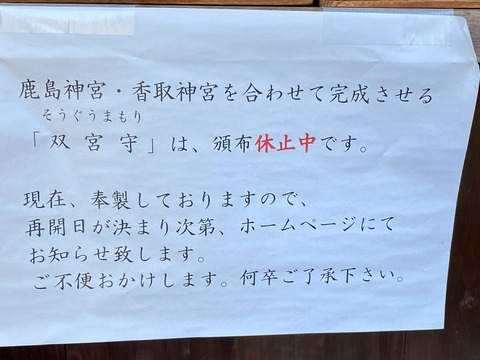 鹿島神宮・香取神宮を合わせて完成させる
そうぐうまもり
「双宮守」は、頒布休止中です。
現在、奉製しておりますので、
再開日が決まり次第、ホームページにて
お知らせ致します。
ご不便おかけします。何卒ご了承下さい。